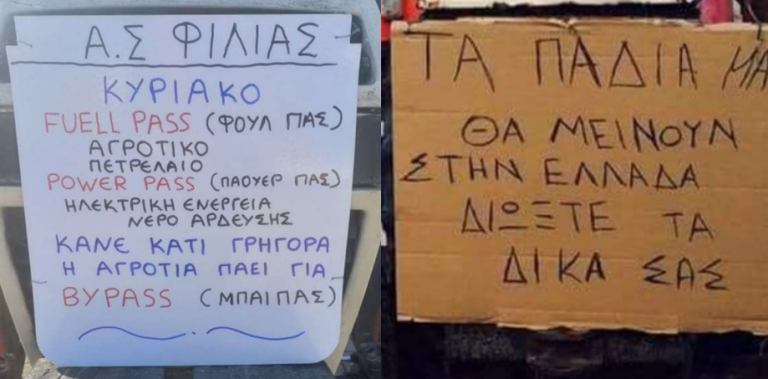 Α.Σ ΦΙΛΙΑΣ
ΚΥΡΙΑΚΟ
FUELL PASS (ΦΟΥΛ ΠΑΣ)
ΑΓΡΟΤΙΚΟ
ΠΕΤΡΕΛΑΙΟ
POWER PASS (ΠΑΟΥΕΡ ΠΑΣ)
ΗΛΕΚΤΡΙΚΗ ΕΝΕΡΓΕΙΑ
ΝΕΡΟ ΑΡΔΕΥΣΗΣ
ΚΑΝΕ ΚΑΤΙ ΓΡΗΓΟΡΑ
Η ΑΓΡΟΤΙΑ ΠΑΕΙ ΓΙΑ
BYPASS (ΜΠΑΙΠΑΣ)
ΤΑ ΠΑΔΙΑ ΜΑ
ΘΑ ΜΕΙΝΟΥΝ
ΣΤΗΝ ΕΛΛΑΔΑ
ΔΙΩΞΤΕ ΤΑ
ΔΙΚΑ ΣΑΣ